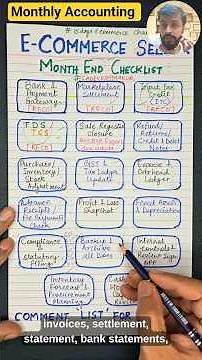 Monthly Accounting
E-COMMERCE SEL
MONTH END CHECKLIST
Bank &
Payment
Gateway
(RECO)
Marketplace
Settlement
(RECO)
Input Tax
Credit
(ITC)
(RECO)
TDS /
TCS
(RECO)
Sale Register
closure
Refund/
Returns/
Credit & Debit
Notes
Purchase/
Inventory/
Stock
Adjustment
GST &
Tax Ledger
Update
Expense &
Overhead
Ledger
Advance
Receipts/
Profit & Loss
Snapshot
Fixed Assets
& Depreciation
Compliance &
Statutory
Filing
Backup &
Archive
all Docs
Internal
Controls &
Review Sign
OFF
Inventory
Forecast &
Procurement
Planning
COMMENT 'LIST' FOR
invoices, settlement,
statement, bank statements,